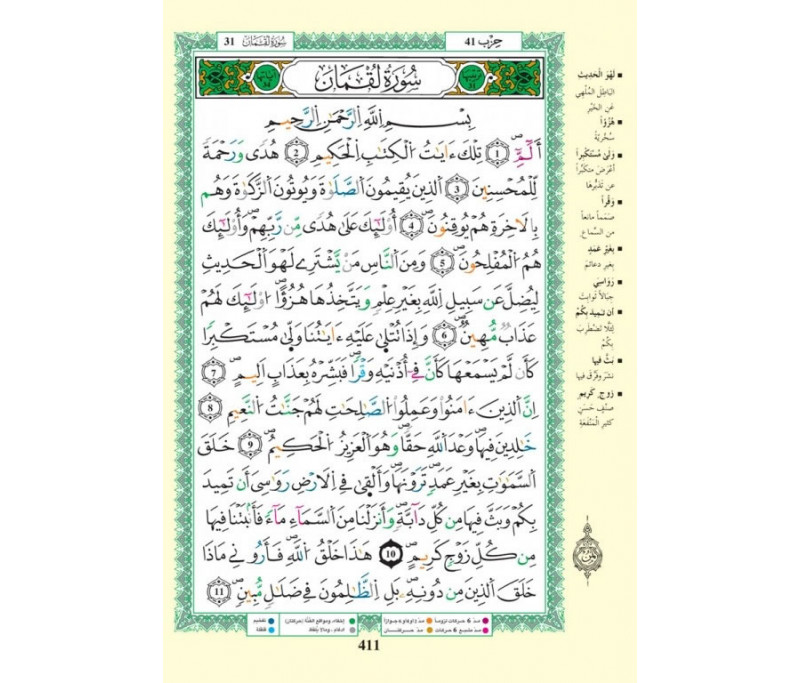 سُورَةُ لُقْمَان 31
حِزْب 41
سُورَةُ لُقْمَان
بِسْمِ اِللَّهِ اِلرَّحْمَٰنِ اِلرَّحِيمِ
أَلَمِّٓ 1 تِلْكَ ءَايَٰتُ اُلْكِتَٰبِ اِلْحَكِيمِ 2 هُدىً وَرَحْمَةً
لِّلْمُحْسِنِينَ 3 اَلذِينَ يُقِيمُونَ اَلصَّلَوٰةَ وَيُوتُونَ اَلزَّكَوٰةَ وَهُم
بِالَاخِرَةِ هُمْ يُوقِنُونَ 4 أُوْلَٰٓئِكَ عَلَىٰ هُدىً مِّن رَّبِّهِمْ وَأُوْلَٰٓئِكَ
هُمُ اُلْمُفْلِحُونَ 5 وَمِنَ اَلنَّاسِ مَنْ يَّشْتَرِے لَهْوَ اَلْحَدِيثِ
لِيُضِلَّ عَن سَبِيلِ اِللَّهِ بِغَيْرِ عِلْمٍ وَيَتَّخِذُهَا هُزُؤاً اوْلَٰٓئِكَ لَهُمْ
عَذَابٌ مُّهِينٌ 6 وَإِذَا تُتْلَىٰ عَلَيْهِ ءَايَٰتُنَا وَلَّىٰ مُسْتَكْبِراً
كَأَن لَّمْ يَسْمَعْهَا كَأَنَّ فِےٓ أُذْنَيْهِ وَقْراً فَبَشِّرْهُ بِعَذَابٍ اَلِيمٍ 7
اِنَّ اَلذِينَ ءَامَنُوا وَعَمِلُوا اُلصَّٰلِحَٰتِ لَهُمْ جَنَّٰتُ اُلنَّعِيمِ 8
خَٰلِدِينَ فِيهَا وَعْدَ اَللَّهِ حَقّاً وَهُوَ اَلْعَزِيزُ اُلْحَكِيمُ 9 خَلَقَ
اَلسَّمَٰوَٰتِ بِغَيْرِ عَمَدٍ تَرَوْنَهَا وَأَلْقَىٰ فِے اِلَارْضِ رَوَٰسِيَ أَن تَمِيدَ
بِكُمْ وَبَثَّ فِيهَا مِن كُلِّ دَآبَّةٍ وَأَنزَلْنَا مِنَ اَلسَّمَآءِ مَآءً فَأَنۢبَتْنَا فِيهَا
مِن كُلِّ زَوْجٍ كَرِيمٍ 10 هَٰذَا خَلْقُ اُللَّهِ فَأَرُونِے مَاذَا
خَلَقَ اَلذِينَ مِن دُونِهِۦ بَلِ اِلظَّٰلِمُونَ فِے ضَلَٰلٍ مُّبِينٍ 11
لَهْوَ الْحَدِيثِ
الباطِلَ المُلْهِي
عَنِ الخَيْرِ
هُزُؤاً
سُخْرِيَّةً
وَلَّىٰ مُسْتَكْبِراً
أعْرَضَ مُتَكَبِّراً
عن تَدَبُّرِها
وَقْراً
صَمَماً مانعاً
من السَّماعِ
بِغَيْرِ عَمَدٍ
بِغيرِ دعائمَ
رَوَاسِيَ
جِبَالاً ثوابِتَ
أن تميدَ بِكُمْ
لِئَلَّا تَضْطَرِبَ
بِكُمْ
بَثَّ فيها
نشَرَ وفرَّقَ فيها
زَوْجٍ كَرِيمٍ
صِنْفٍ حَسَنٍ
كثيرِ المَنْفَعَةِ
ثمن
مدّ 6 حركات لزوماً
مدّ 2 أو 4 أو 6 جوازاً
إخفاء، ومواقع الغُنَّة (حركتان)
تفخيم
مدّ مشبع 6 حركات
مدّ حركتان
ادغام، وما لا يُلفَظ
قلقلة
411